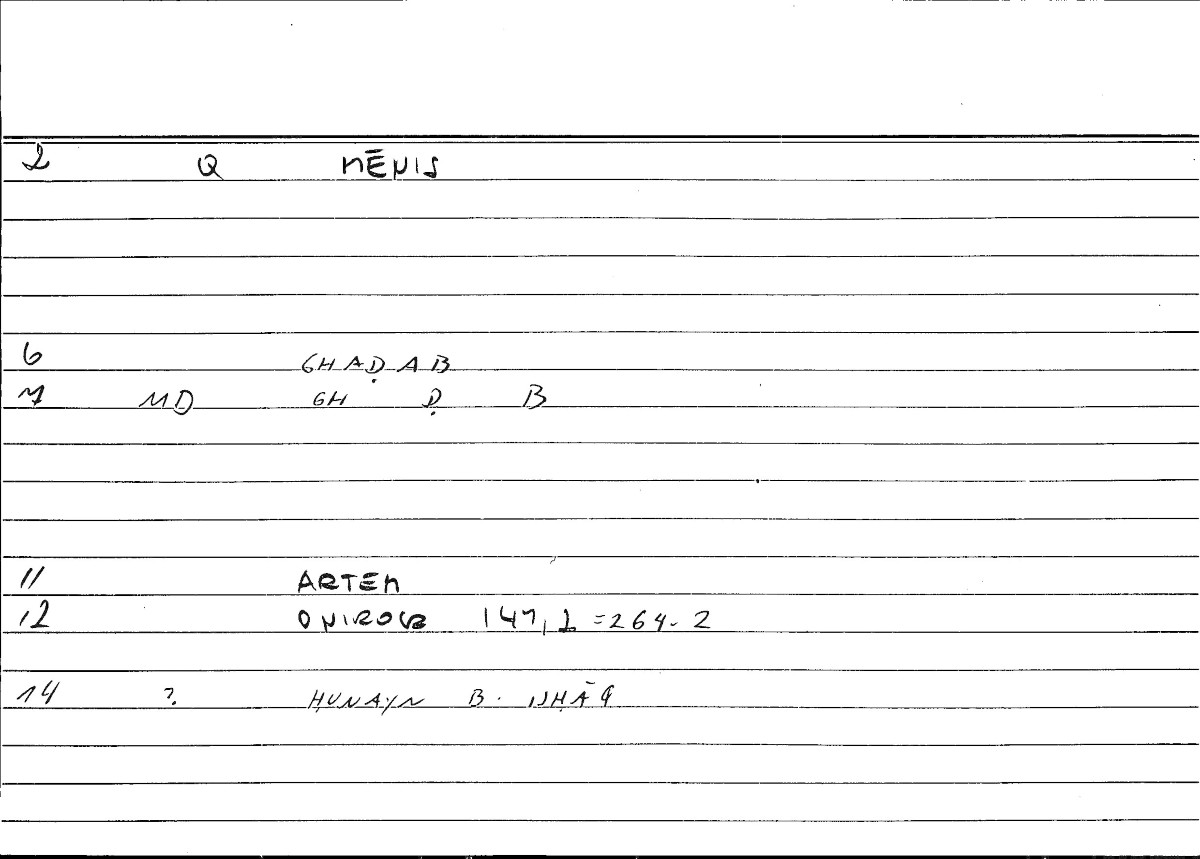 2 Q MĒNIS
6 GHAḌAB
7 MD GH Ḍ B
11 ARTEM
12 ONIROCR 147,2 = 264.2
14 ? ḤUNAYN B. ISḤĀQ